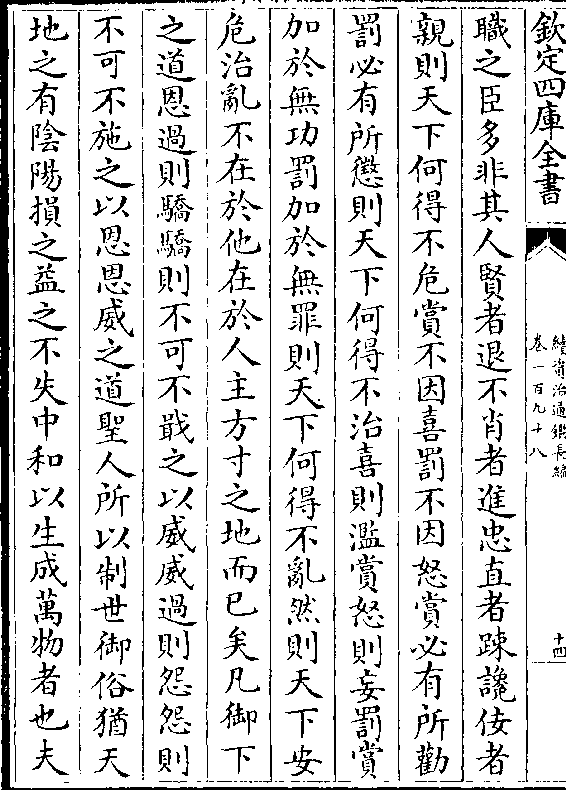 欽定四庫全書
續資治通鑑長編
卷一百九十八
十四
職之臣多非其人賢者退不肖者進忠直者踈讒佞者
親則天下何得不危賞不因喜罰不因怒賞必有所勸
罰必有所懲則天下何得不治喜則濫賞怒則妄罰賞
加於無功罰加於無罪則天下何得不亂然則天下安
危治亂不在於他在於人主方寸之地而已矣凡御下
之道恩過則驕驕則不可不戢之以威威過則怨怨則
不可不施之以恩恩威之道聖人所以制世御俗猶天
地之有陰陽損之益之不失中和以生成萬物者也夫